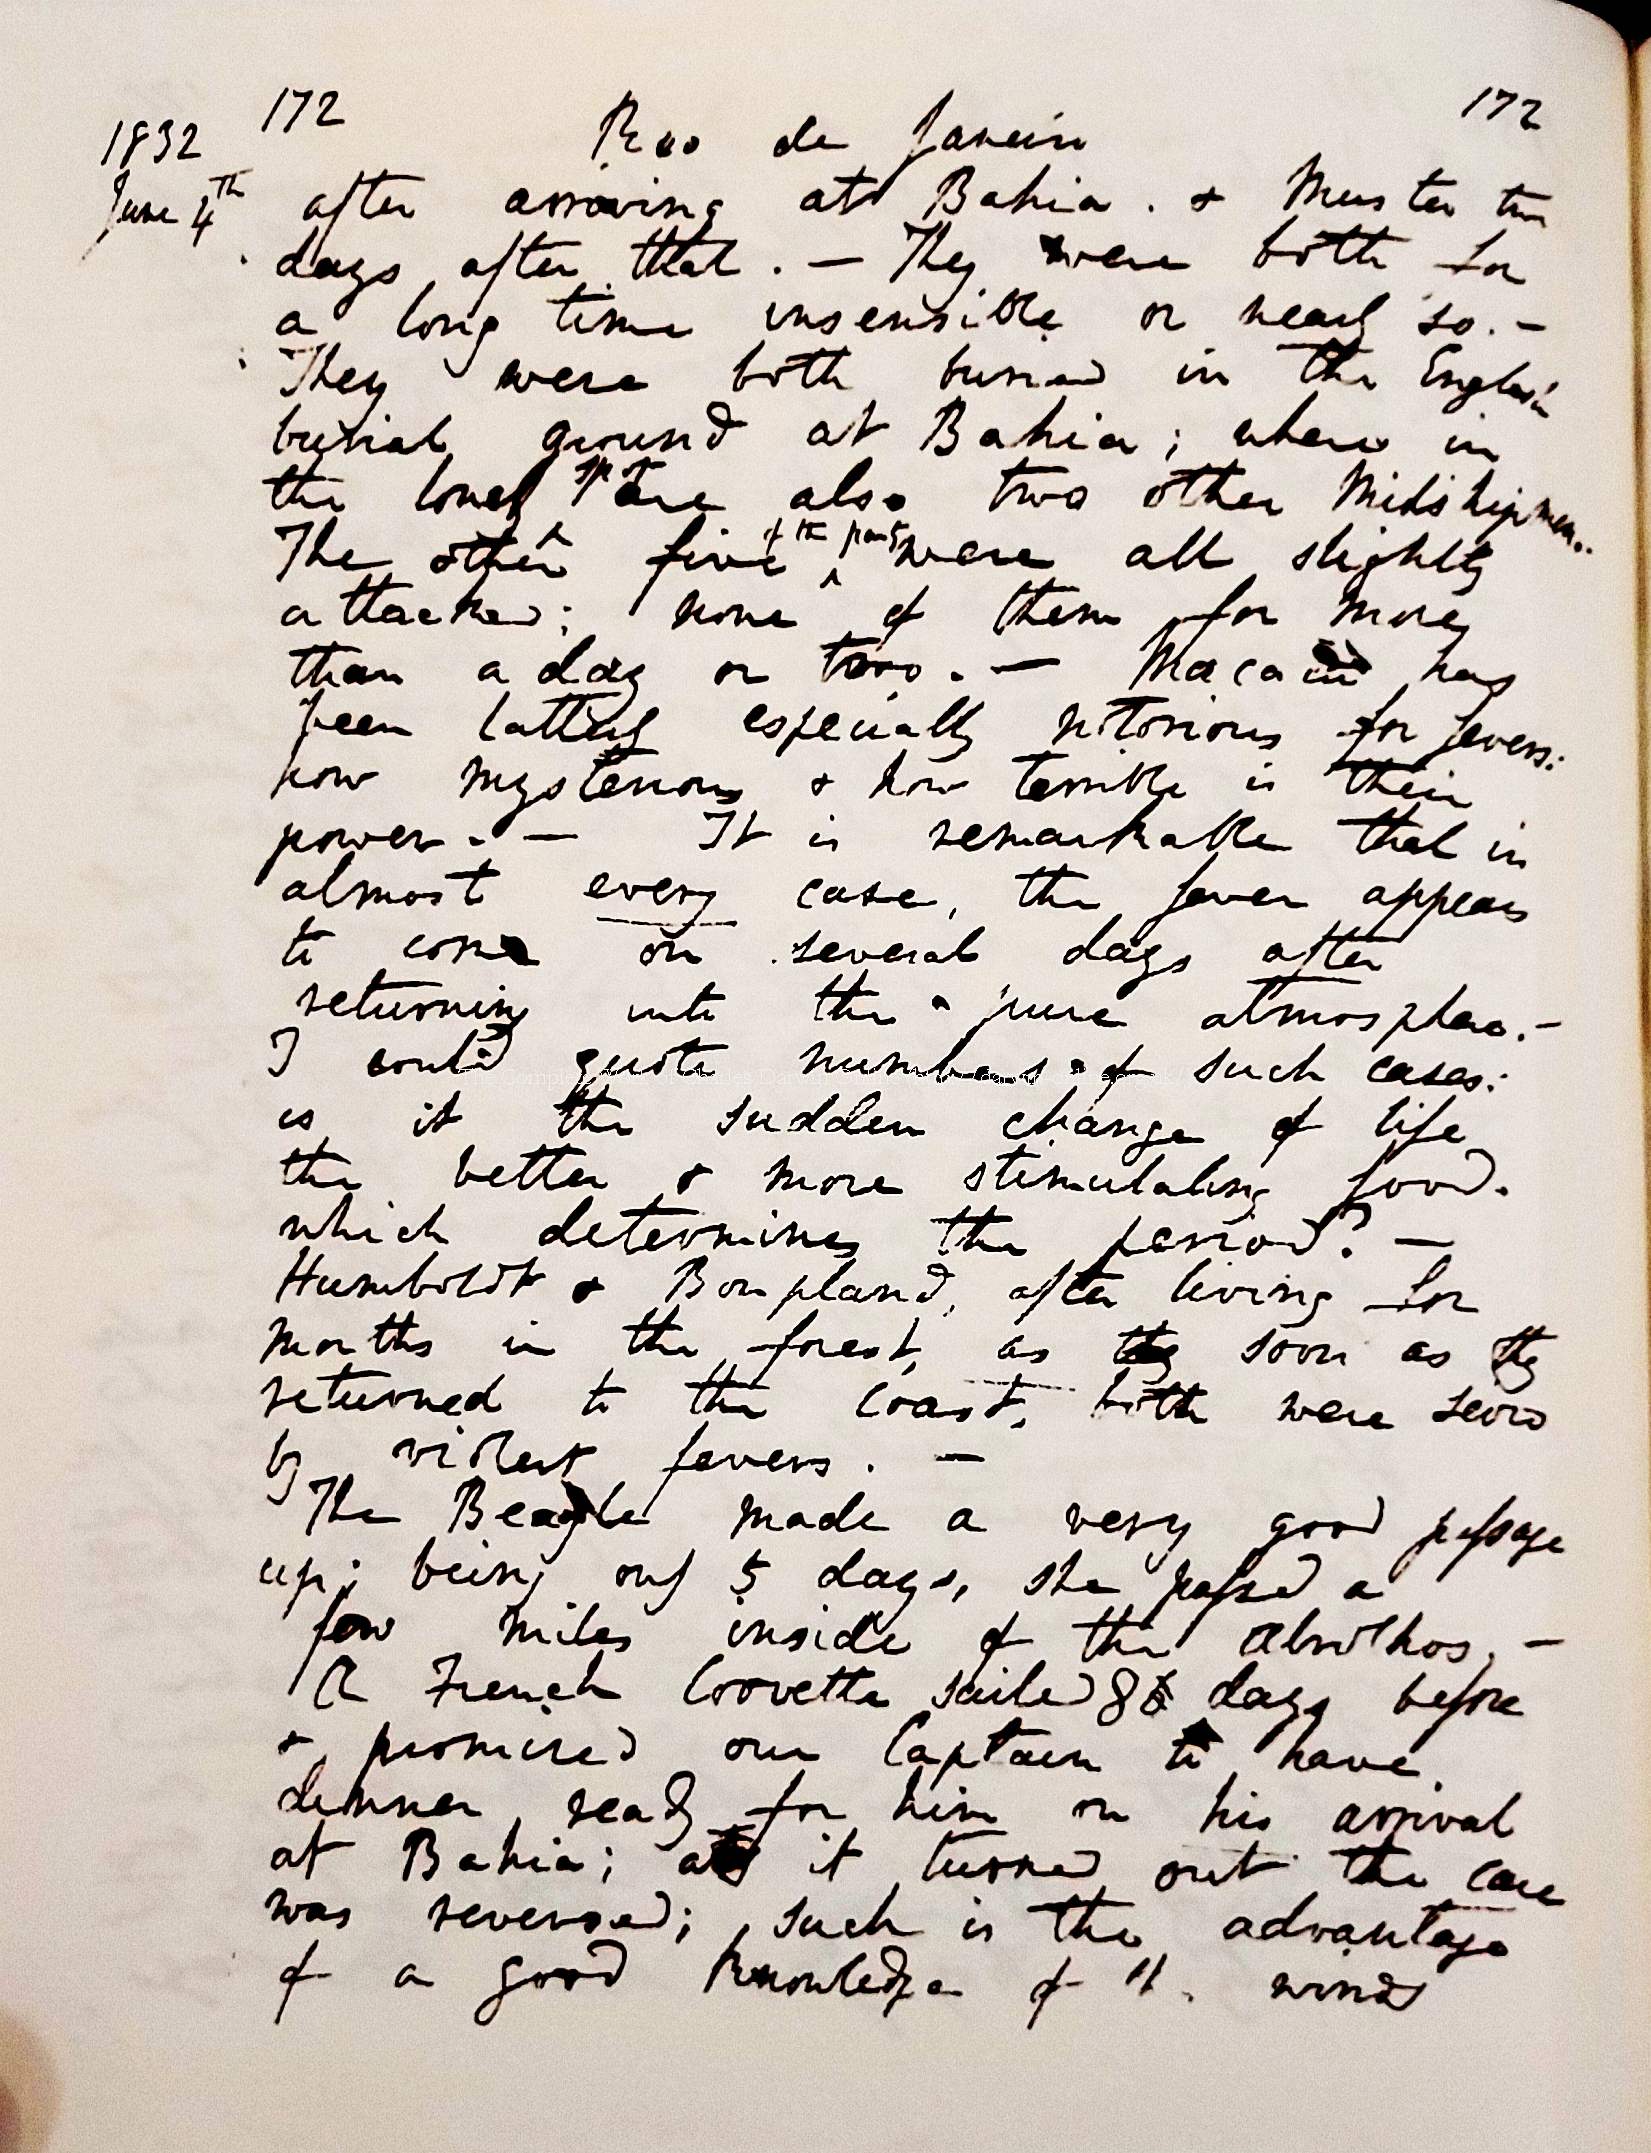 172 Rio de Janeiro 172
1832
June 4th after arriving at Bahia. & Musters two
days after that. — They were both for
a long time insensible or nearly so. —
They were both buried in the English
burial ground at Bahia; where in
the lonely spot are also two other Midshipmen.
The other five of the party were all slightly
attacked; none of them for more
than a day or two. — Macacu has
been latterly especially notorious for fevers:
how mysterious & how terrible is their
power. — It is remarkable that in
almost every case, the fever appears
to come on several days after
returning into the pure atmosphere. —
I could quote numbers of such cases:
is it the sudden change of life
the better & more stimulating food.
which determines the period? —
Humboldt & Bonpland, after living for
months in the forest, as soon as they
returned to the coast, both were seized
by violent fevers. —
The Beagle made a very good passage
up; being only 5 days, she passed a
few miles inside of the Abrolhos, —
A French Corvette sailed 8 days before
& promised our Captain to have
dinner ready for him on his arrival
at Bahia; as it turned out the case
was reversed; such is the advantage
of a good knowledge of winds